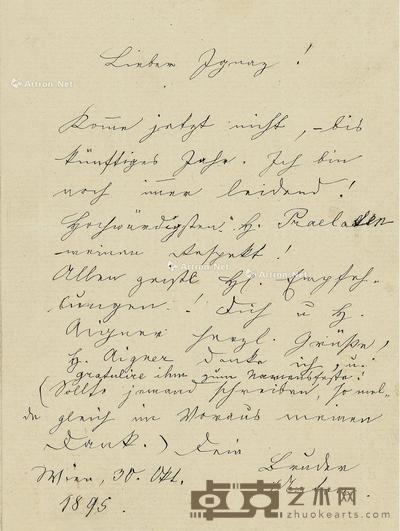 Lieber Ignaz!
Kom̄e jetzt nicht, – bis
künftiges Jahr. Ich bin
noch im̄er leidend!
Hochwürdigsten H. Praelaten
meinen Respekt!
Allen geistl. HH. Empfeh-
lungen! Dich u H.
Aigner herzl. Grüße,
H. Aigner danke ich, u.
gratulire ihm zum Namensfeste!
(Sollte jemand schreiben, so mel-
de gleich im Voraus meinen
Dank.) Dein
Bruder
Wien, 30. Okt.
1895.
Artron.Net
Artron.Net
Artron.Net
卓克艺术网
www.zhuokearts.com